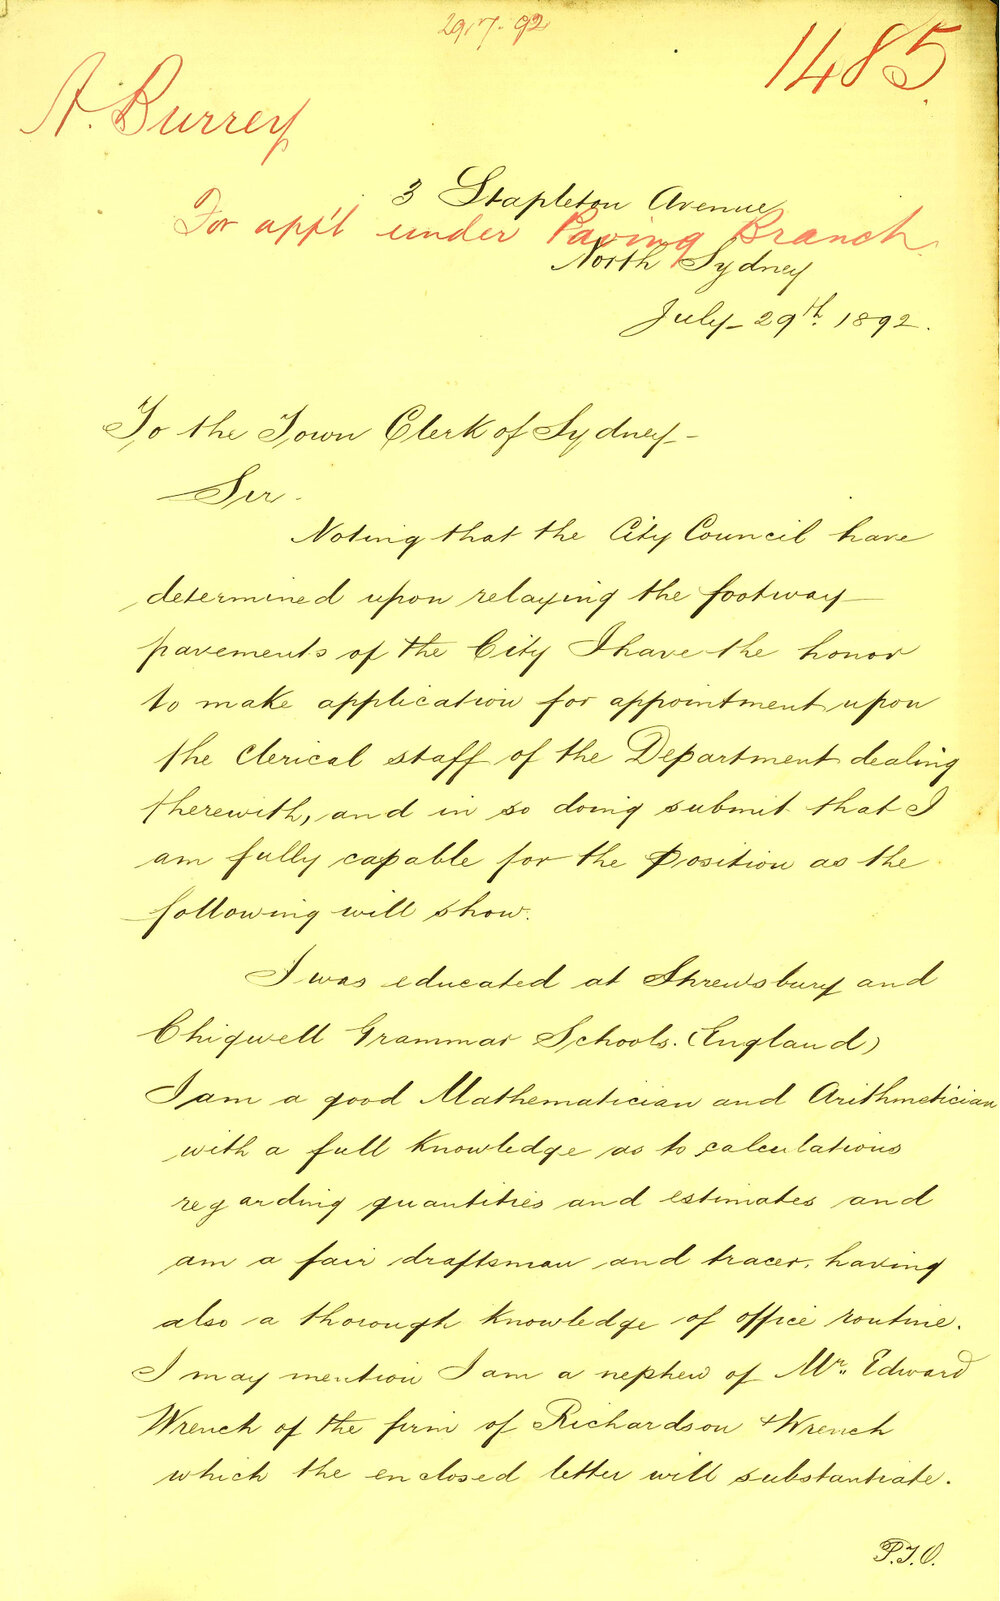 29.7.92
1485
A. Burrey
3 Stapleton Avenue
For app't under Paving Branch.
North Sydney
July 29th. 1892.
To the Town Clerk of Sydney -
Sir -
Noting that the City Council have
determined upon relaying the footway
pavements of the City I have the honor
to make application for appointment upon
the clerical staff of the Department dealing
therewith, and in so doing submit that I
am fully capable for the position as the
following will show.
I was educated at Shrewsbury and
Chigwell Grammar Schools. (England)
I am a good Mathematician and Arithmetician
with a full knowledge as to calculations
regarding quantities and estimates and
am a fair draftsman and tracer, having
also a thorough knowledge of office routine.
I may mention I am a nephew of Mr. Edward
Wrench of the firm of Richardson & Wrench
which the enclosed letter will substantiate.
P.T.O.